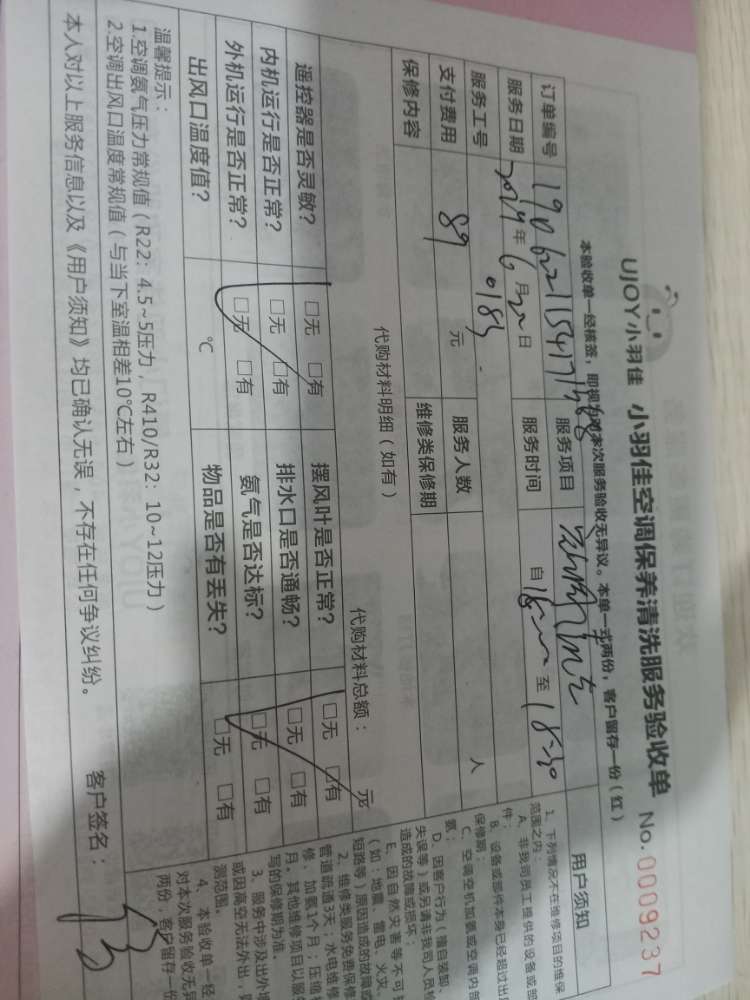 UJOY小羽佳 小羽佳空调保养清洗服务验收单 No.0009237
本验收单一经核签，即视为对本次服务验收无异议。本单一式两份，客户留存一份（红）
订单编号 服务项目
服务日期 2019年6月22日 服务时间 自 至 18:30
服务工号 0183
支付费用 89 元 服务人数 人
保修内容 维修类保修期
代购材料明细（如有） 代购材料总额： 元
遥控器是否灵敏？ □无 □有 摆风叶是否正常？ □无 □有
内机运行是否正常？ □无 □有 排水口是否通畅？ □无 □有
外机运行是否正常？ □无 □有 氨气是否达标？ □无 □有
出风口温度值？ ℃ 物品是否有丢失？ □无 □有
温馨提示：
1.空调氨气压力常规值（R22：4.5~5压力，R410/R32：10~12压力）
2.空调出风口温度常规值（与当下室温相差10℃左右）
本人对以上服务信息以及《用户须知》均已确认无误，不存在任何争议纠纷。 客户签名：
用户须知
1、下列情况不在维修项目的维保
范围之内：
A、非我司员工提供的设备或部
件；
B、设备或部件本身已经超过出
保修期；
C、空调空机加氨或空调内部
氨；
D、因客户行为（擅自装卸、
失误等）或另请非我司人员
造成的故障或损坏；
E、因自然灾害等不可
（如：地震、雷电、火灾、
短路等）原因造成的故障或
2、维修类服务免费保修
管道疏通3天；水电维修
修、加氨1个月；压缩
月。其他维修项目以服
写的保修期为准。
3、服务中涉及出外
或因高空无法外出，
测范围。
4、本验收单一经
对本次服务验收无异
两份，客户留存一份